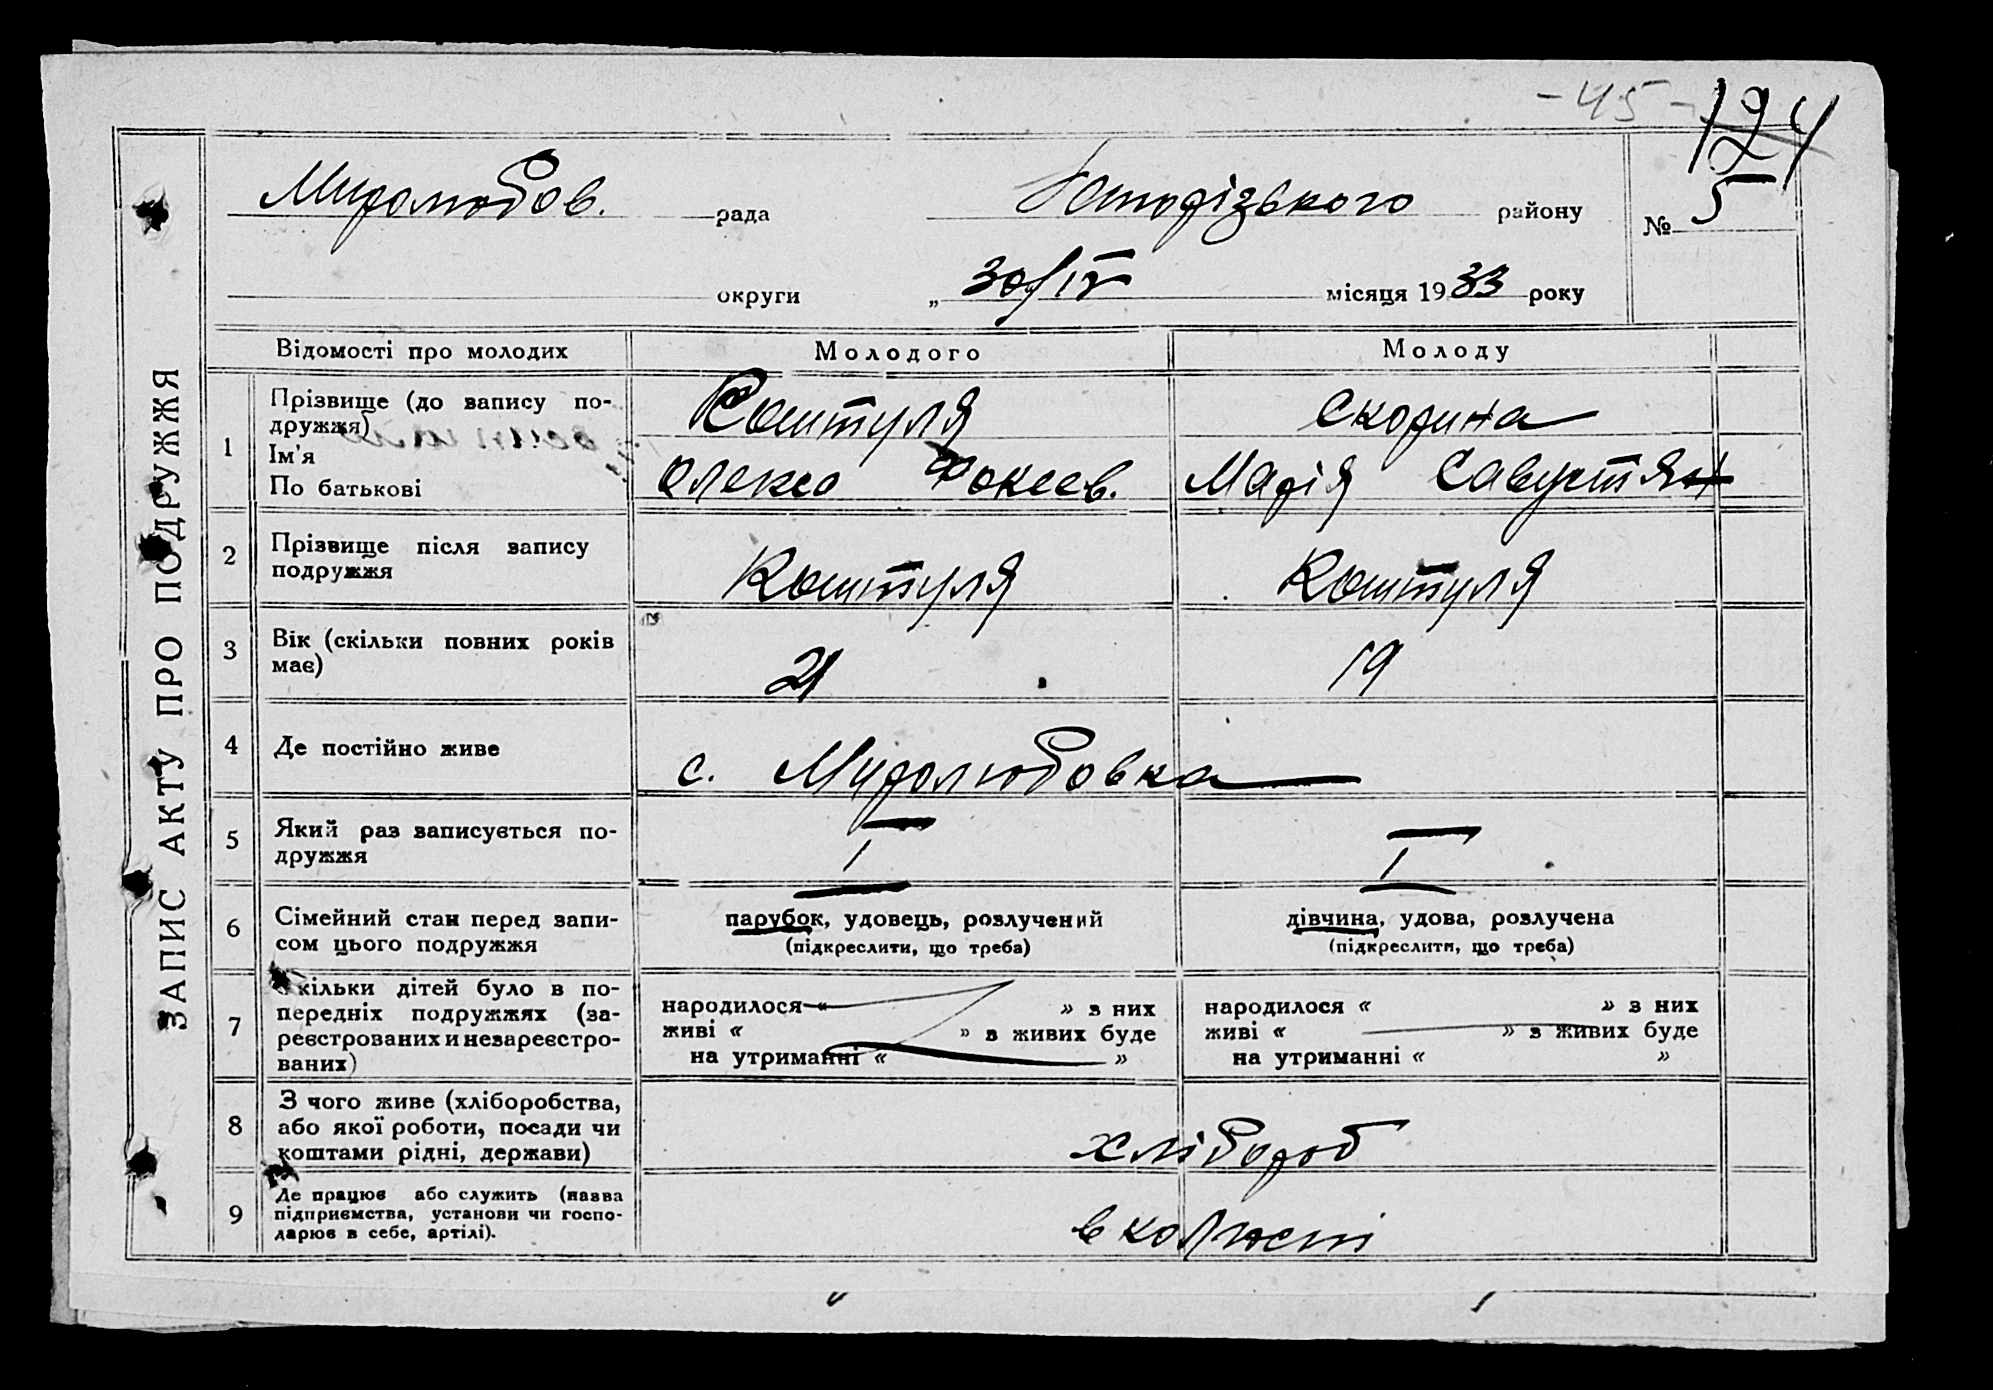 - 45 -
124
Миролюбов. рада
району
№ 5
округи „ 30/IV місяця 1933 року
ЗАПИС АКТУ ПРО ПОДРУЖЖЯ
Відомості про молодих Молодого Молоду
1
Прізвище (до запису по-
дружжя)
Коштуля Скорина
Ім'я
По батькові
Олексо Фокеев. Марія Савустян
2
Прізвище після запису
подружжя
Коштуля Коштуля
3
Вік (скільки повних років
має)
21 19
4
Де постійно живе
с. Миролюбовка
5
Який раз записується по-
дружжя
I I
6
Сімейний стан перед запи-
сом цього подружжя
парубок, удовець, розлучений
(підкреслити, що треба)
дівчина, удова, розлучена
(підкреслити, що треба)
7
Скільки дітей було в по-
передніх подружжях (за-
реєстрованих и незареєстро-
ваних)
народилося « » з них
живі « » з живих буде
на утриманні « »
народилося « » з них
живі « » з живих буде
на утриманні « »
8
З чого живе (хліборобства,
або якої роботи, посади чи
коштами рідні, держави)
хлібороб
9
Де працює або служить (назва
підприємства, установи чи госпо-
дарює в себе, артілі).
в колгоспі